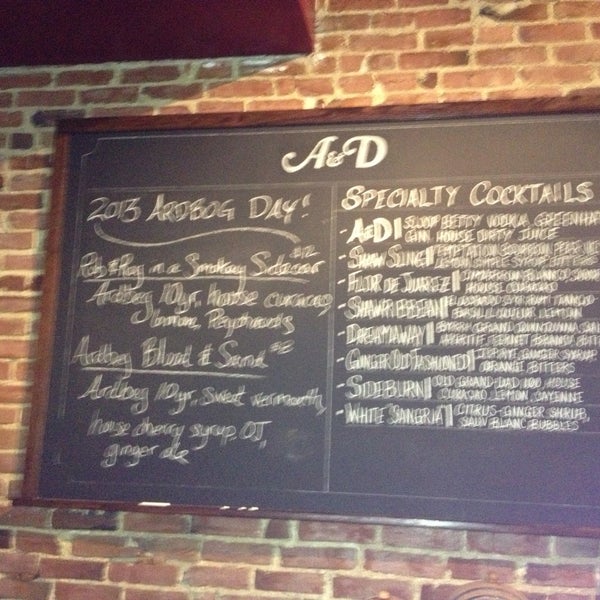 A&D
2013 ARDBOG DAY!
Rob & Roy in a Smokey Sidecar $12
Ardbeg 10yr, house curacao,
lemon, Peychauds
Ardbeg Blood & Sand
Ardbeg 10yr, sweet vermouth,
house cherry syrup, OJ,
ginger ale
SPECIALTY COCKTAILS
- A&D | SLOOP BETTY VODKA, GREENHAT
GIN, HOUSE DIRTY JUICE
- SHAW SLING | TEMPTATION BOURBON,
LEMON, SIMPLE SYRUP, BITTERS
- FLOR DE JUAREZ | CIMARRON BLANCO,
HOUSE CURACAO
- SHAWRIBBEAN |
LEMON
- DREAMAWAY | BYRRH GRAND QUINQUINA,
APERITIF, FERNET BRANCA,
- GINGER OLD FASHIONED | GINGER SYRUP,
ORANGE BITTERS
- SIDEBURN | OLD GRAND-DAD 100, HOUSE
CURACAO, LEMON, CAYENNE
- WHITE SANGRIA | CITRUS-GINGER SHRUB,
SAUV BLANC, BUBBLES